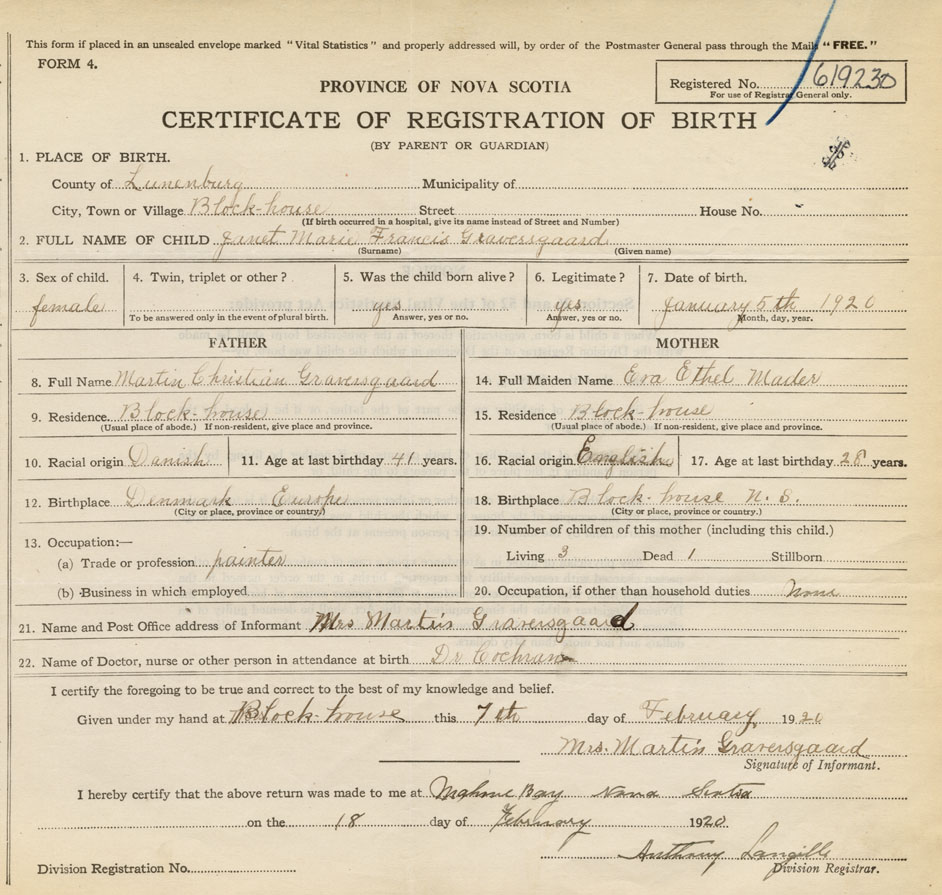 This form if placed in an unsealed envelope marked "Vital Statistics" and properly addressed will, by order of the Postmaster General pass through the Mails "FREE."
FORM 4.
PROVINCE OF NOVA SCOTIA
Registered No. 619230
For use of Registrar General only.
CERTIFICATE OF REGISTRATION OF BIRTH
(BY PARENT OR GUARDIAN)
1. PLACE OF BIRTH.
County of Lunenburg Municipality of
City, Town or Village Block-house Street House No.
(If birth occurred in a hospital, give its name instead of Street and Number)
2. FULL NAME OF CHILD Janet Marie Francis Graversgaard
(Surname) (Given name)
3. Sex of child. 4. Twin, triplet or other? 5. Was the child born alive? 6. Legitimate? 7. Date of birth.
female yes yes January 5th 1920
To be answered only in the event of plural birth. Answer, yes or no. Answer, yes or no. Month, day, year.
FATHER MOTHER
8. Full Name Martin Christian Graversgaard 14. Full Maiden Name Eva Ethel Mader
9. Residence Block-house 15. Residence Block-house
(Usual place of abode.) If non-resident, give place and province. (Usual place of abode.) If non-resident, give place and province.
10. Racial origin Danish 11. Age at last birthday 41 years. 16. Racial origin English 17. Age at last birthday 28 years.
12. Birthplace Denmark Europe 18. Birthplace Block-house N. S.
(City or place, province or country.) (City or place, province or country.)
13. Occupation:— 19. Number of children of this mother (including this child.)
(a) Trade or profession painter Living 3 Dead 1 Stillborn
(b) Business in which employed 20. Occupation, if other than household duties None
21. Name and Post Office address of Informant Mrs Martin Graversgaard
22. Name of Doctor, nurse or other person in attendance at birth Dr Cochran
I certify the foregoing to be true and correct to the best of my knowledge and belief.
Given under my hand at Block-house this 7th day of February 1920
Mrs. Martin Graversgaard
Signature of Informant.
I hereby certify that the above return was made to me at Mahone Bay Nova Scotia
on the 18 day of February 1920
Anthony Langille
Division Registration No. Division Registrar.